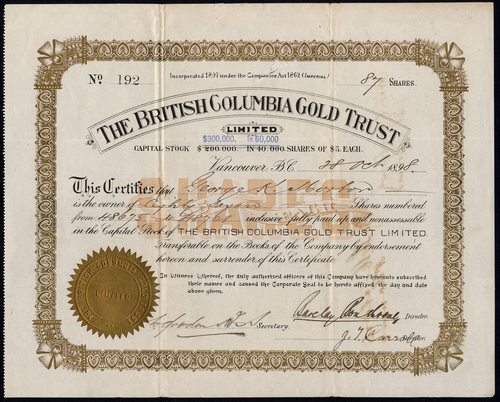 No. 192
Incorporated 1897 under the Companies Act 1862 (Imperial)
87 SHARES.
THE BRITISH COLUMBIA GOLD TRUST
LIMITED
$300.000. In 60,000
CAPITAL STOCK $200.000. IN 40.000 SHARES OF $5. EACH.
Vancouver B.C. 28 Oct. 1898.
This Certifies that George K. Morton
is the owner of Eighty Seven Shares numbered
from to inclusive fully paid up and nonassessable
in the Capital Stock of THE BRITISH COLUMBIA GOLD TRUST LIMITED.
Transferable on the Books of the Company by endorsement
hereon and surrender of this Certificate.
In Witness Whereof, the duly authorized officers of this Company have hereunto subscribed
their names and caused the Corporate Seal to be hereto affixed the day and
date above given.
Director.
Secretary.
LIMITED